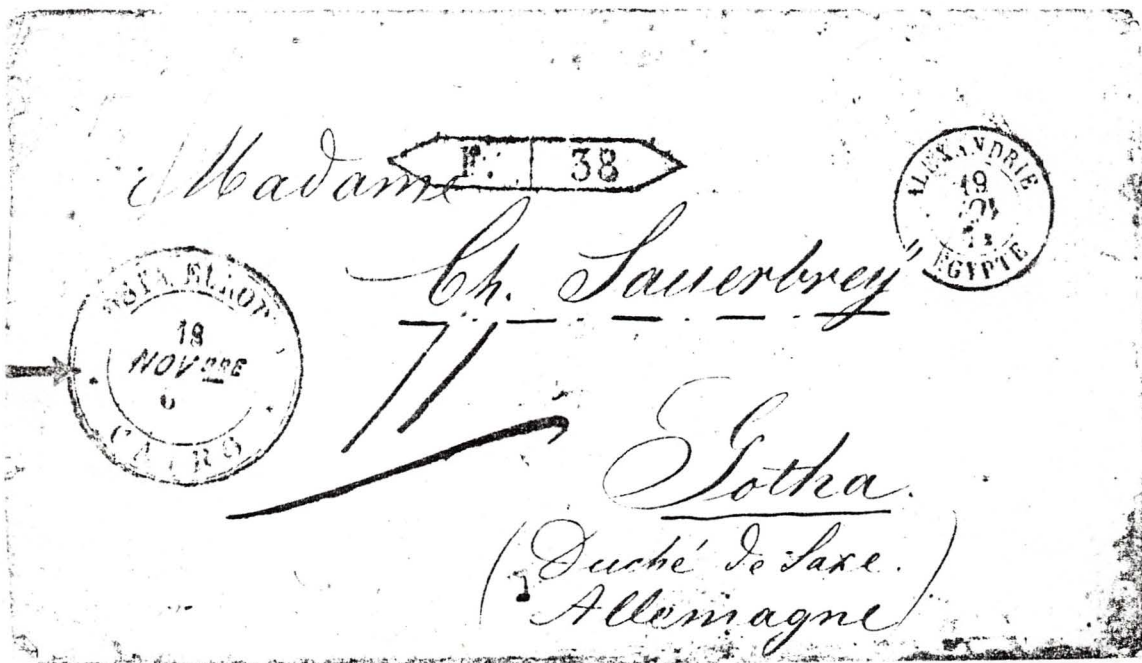 Madame
F. 38
ALEXANDRIE
19
EGYPTE
Ch. Sauerbrey
POSTA EUROP
18
NOVBRE
CAIRO
Gotha.
(Duché de Saxe.
Allemagne)